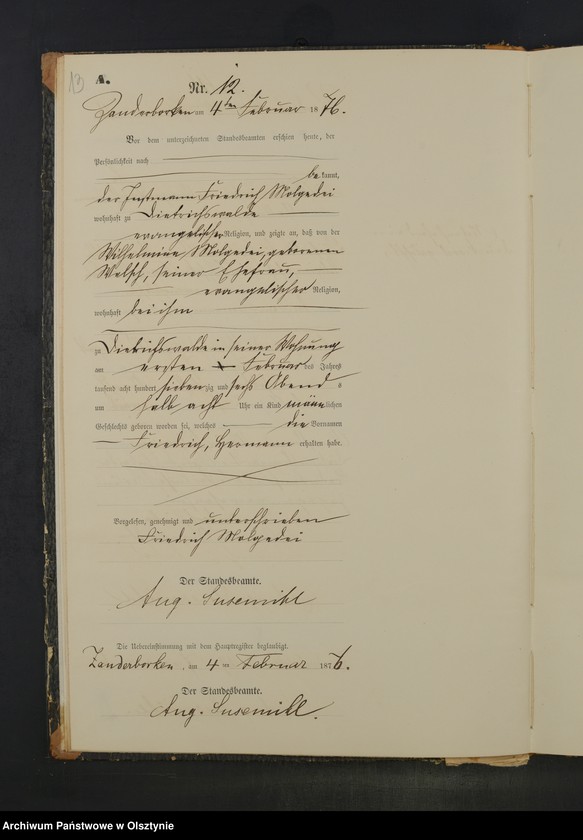 13
A.
Nr. 12.
Zanderborken am 4ten Februar 1876.
Vor dem unterzeichneten Standesbeamten erschien heute, der
Persönlichkeit nach
bekannt,
der Instmann Friedrich Molgedei
wohnhaft zu Dietrichswalde
evangelischer Religion, und zeigte an, daß von der
Wilhelmine Molgedei, geborenen
Welsch, seiner Ehefrau,
evangelischer Religion,
wohnhaft bei ihm
zu Dietrichswalde in seiner Wohnung
am ersten Februar des Jahres
tausend acht hundert siebenzig und sechs Abends
um halb acht Uhr ein Kind männlichen
Geschlechts geboren worden sei, welches die Vornamen
Friedrich, Hermann erhalten habe.
Vorgelesen, genehmigt und unterschrieben
Friedrich Molgedei
Der Standesbeamte.
Aug. Susemihl
Die Uebereinstimmung mit dem Hauptregister beglaubigt.
Zanderborken, am 4 ten Februar 1876.
Der Standesbeamte.
Aug. Susemihl.
Archiwum Państwowe w Olsztynie